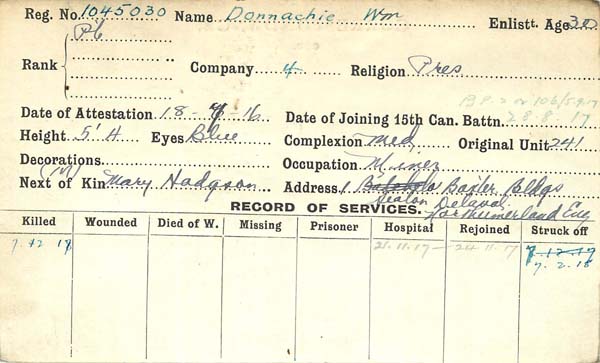 Reg. No. 1045030 Name Donnachie Wm Enlistt. Age 30
Pte
Rank Company 4 Religion Pres
B.P. 2 or 106/5-9-17
Date of Attestation 18-7-16 Date of Joining 15th Can. Battn. 28.8.17
Height 5'4 Eyes Blue Complexion Med Original Unit 241
Decorations Occupation Miner
Next of Kin (M) Mary Hodgson Address 1 Baxter Bldgs
Seaton Delaval
Northumberland Eng
RECORD OF SERVICES.
Killed Wounded Died of W. Missing Prisoner Hospital Rejoined Struck off
7.12 17 21.11.17 — 24.11.17 7.12.17
7.2.18